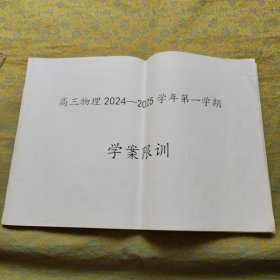 高三物理2024—2025学年第一学期
学案限训